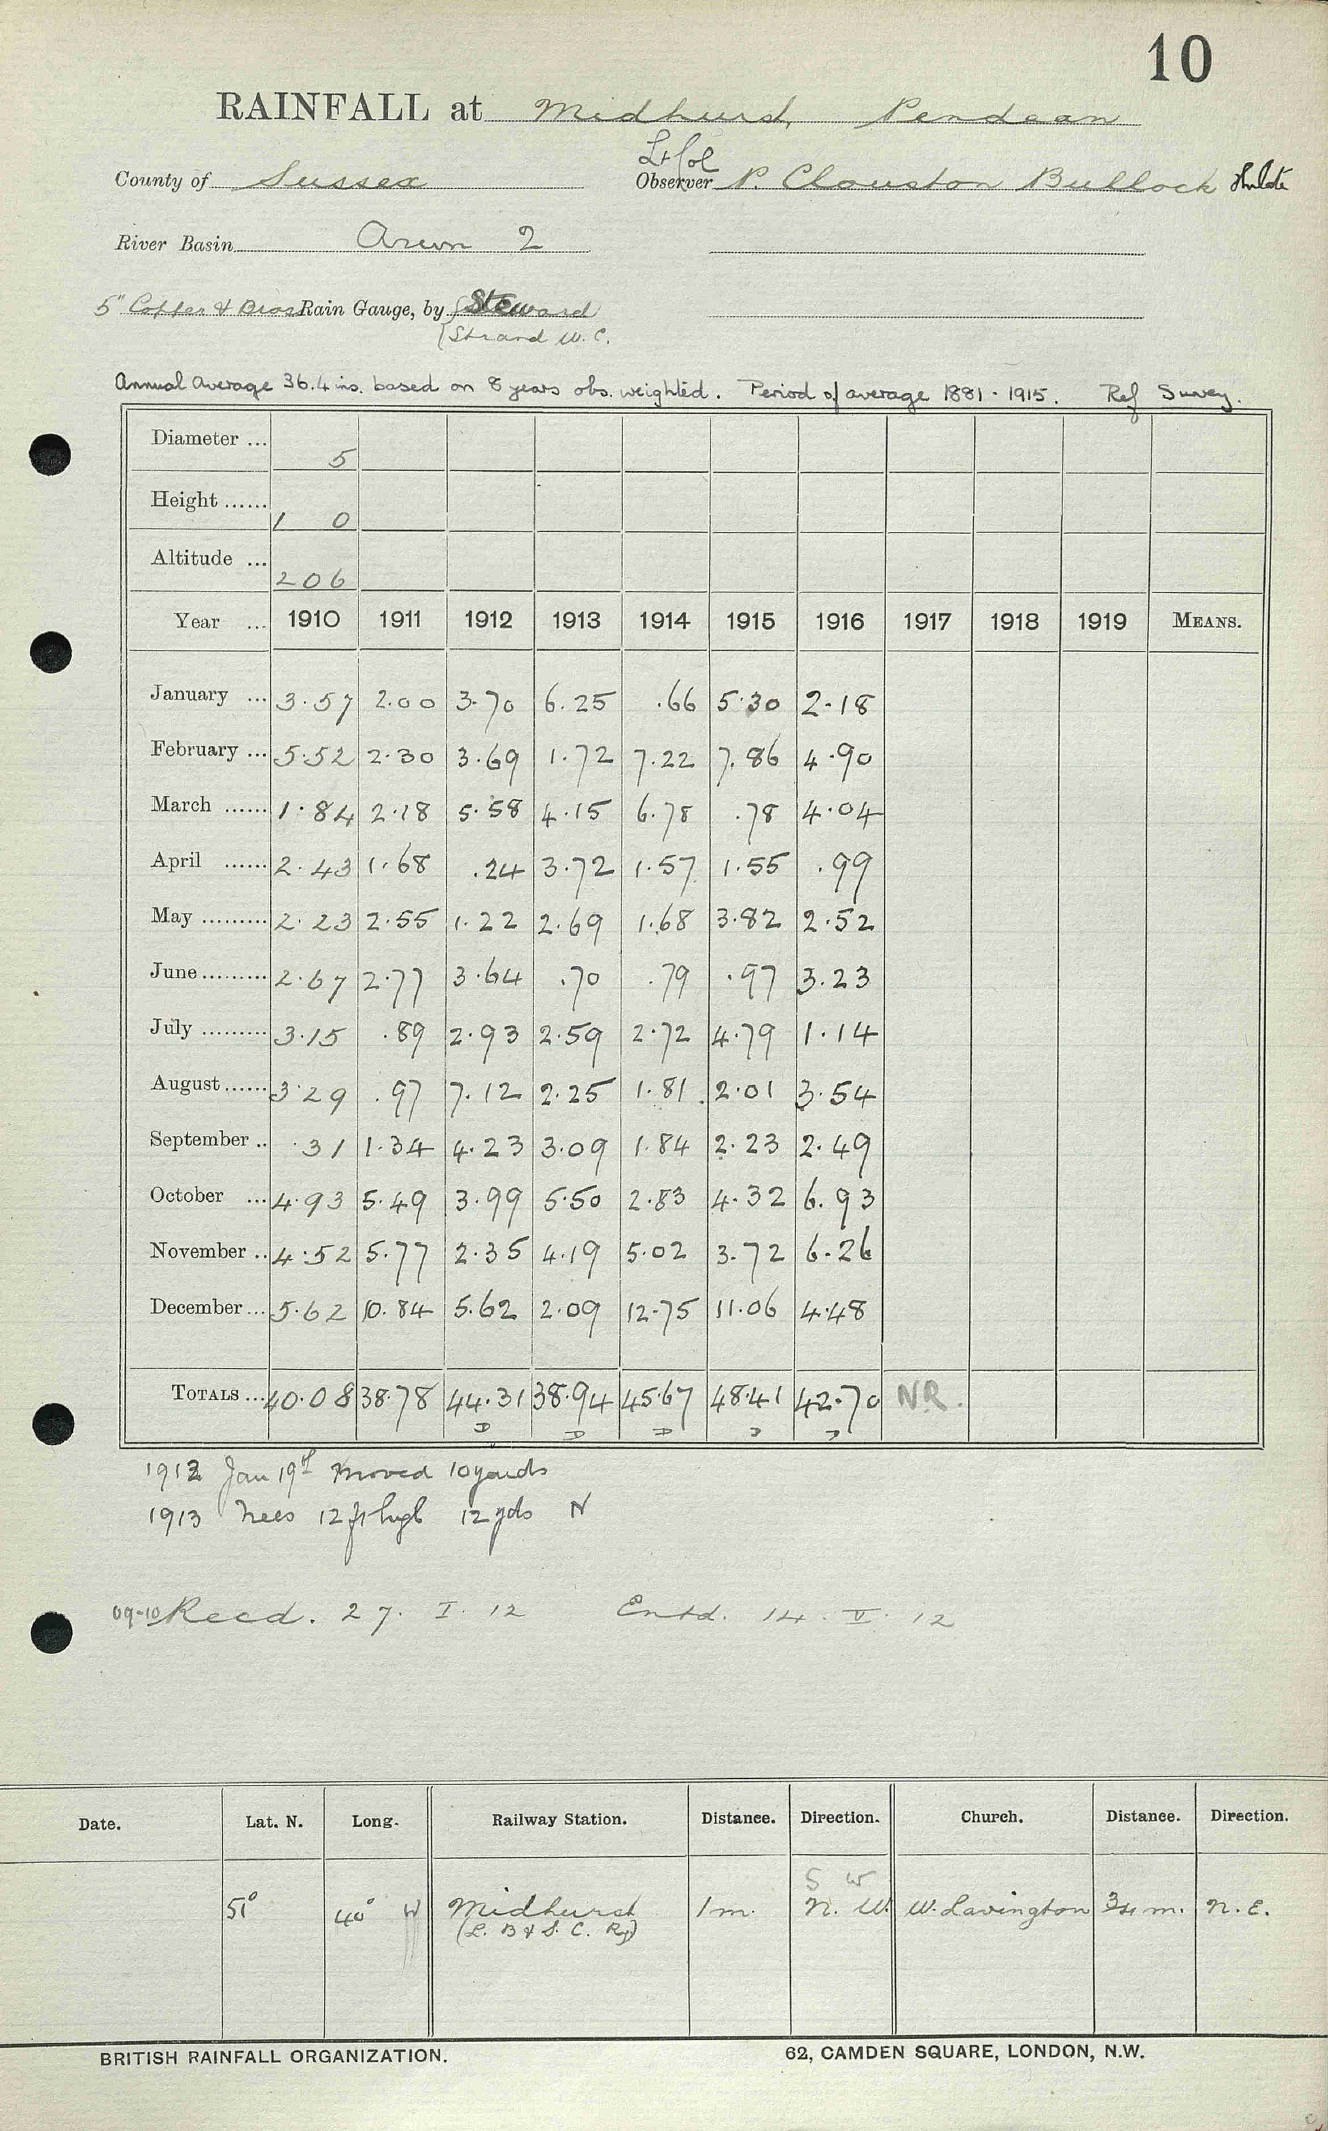 10
RAINFALL at Midhurst, Pendean
Lt Col
County of Sussex Observer P. Clouston Bullock
River Basin Arun 2
5" Copper & Brass Rain Gauge, by Steward
(Strand W.C.
Annual Average 36.4 ins. based on 8 years obs. weighted. Period of average 1881-1915. Ref Survey.
Diameter ... 5
Height ...... 1 0
Altitude ... 206
Year ... 1910 1911 1912 1913 1914 1915 1916 1917 1918 1919 MEANS.
January ... 3.57 2.00 3.70 6.25 .66 5.30 2.18
February ... 5.52 2.30 3.69 1.72 7.22 7.86 4.90
March ...... 1.84 2.18 5.58 4.15 6.78 .78 4.04
April ...... 2.43 1.68 .24 3.72 1.57 1.55 .99
May ......... 2.23 2.55 1.22 2.69 1.68 3.82 2.52
June ......... 2.67 2.77 3.64 .70 .79 .97 3.23
July ......... 3.15 .89 2.93 2.59 2.72 4.79 1.14
August ...... 3.29 .97 7.12 2.25 1.81 2.01 3.54
September .. .31 1.34 4.23 3.09 1.84 2.23 2.49
October ... 4.93 5.49 3.99 5.50 2.83 4.32 6.93
November .. 4.52 5.77 2.35 4.19 5.02 3.72 6.26
December ... 5.62 10.84 5.62 2.09 12.75 11.06 4.48
TOTALS ... 40.08 38.78 44.31 38.94 45.67 48.41 42.70 NR.
1912 Jan 19th moved 10 yards
1913 Trees 12 ft high 12 yds N
09-10 Recd. 27. I. 12 Entd. 14. II. 12
Date. Lat. N. Long. Railway Station. Distance. Direction. Church. Distance. Direction.
S W
51° 40° W Midhurst 1 m. N. W. W. Lavington 3/4 m. N. E.
(L. B & S. C. Ry)
BRITISH RAINFALL ORGANIZATION. 62, CAMDEN SQUARE, LONDON, N.W.